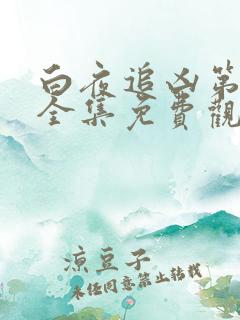 白夜追凶第
全集免費觀
涼豆子
未经同意禁止转载